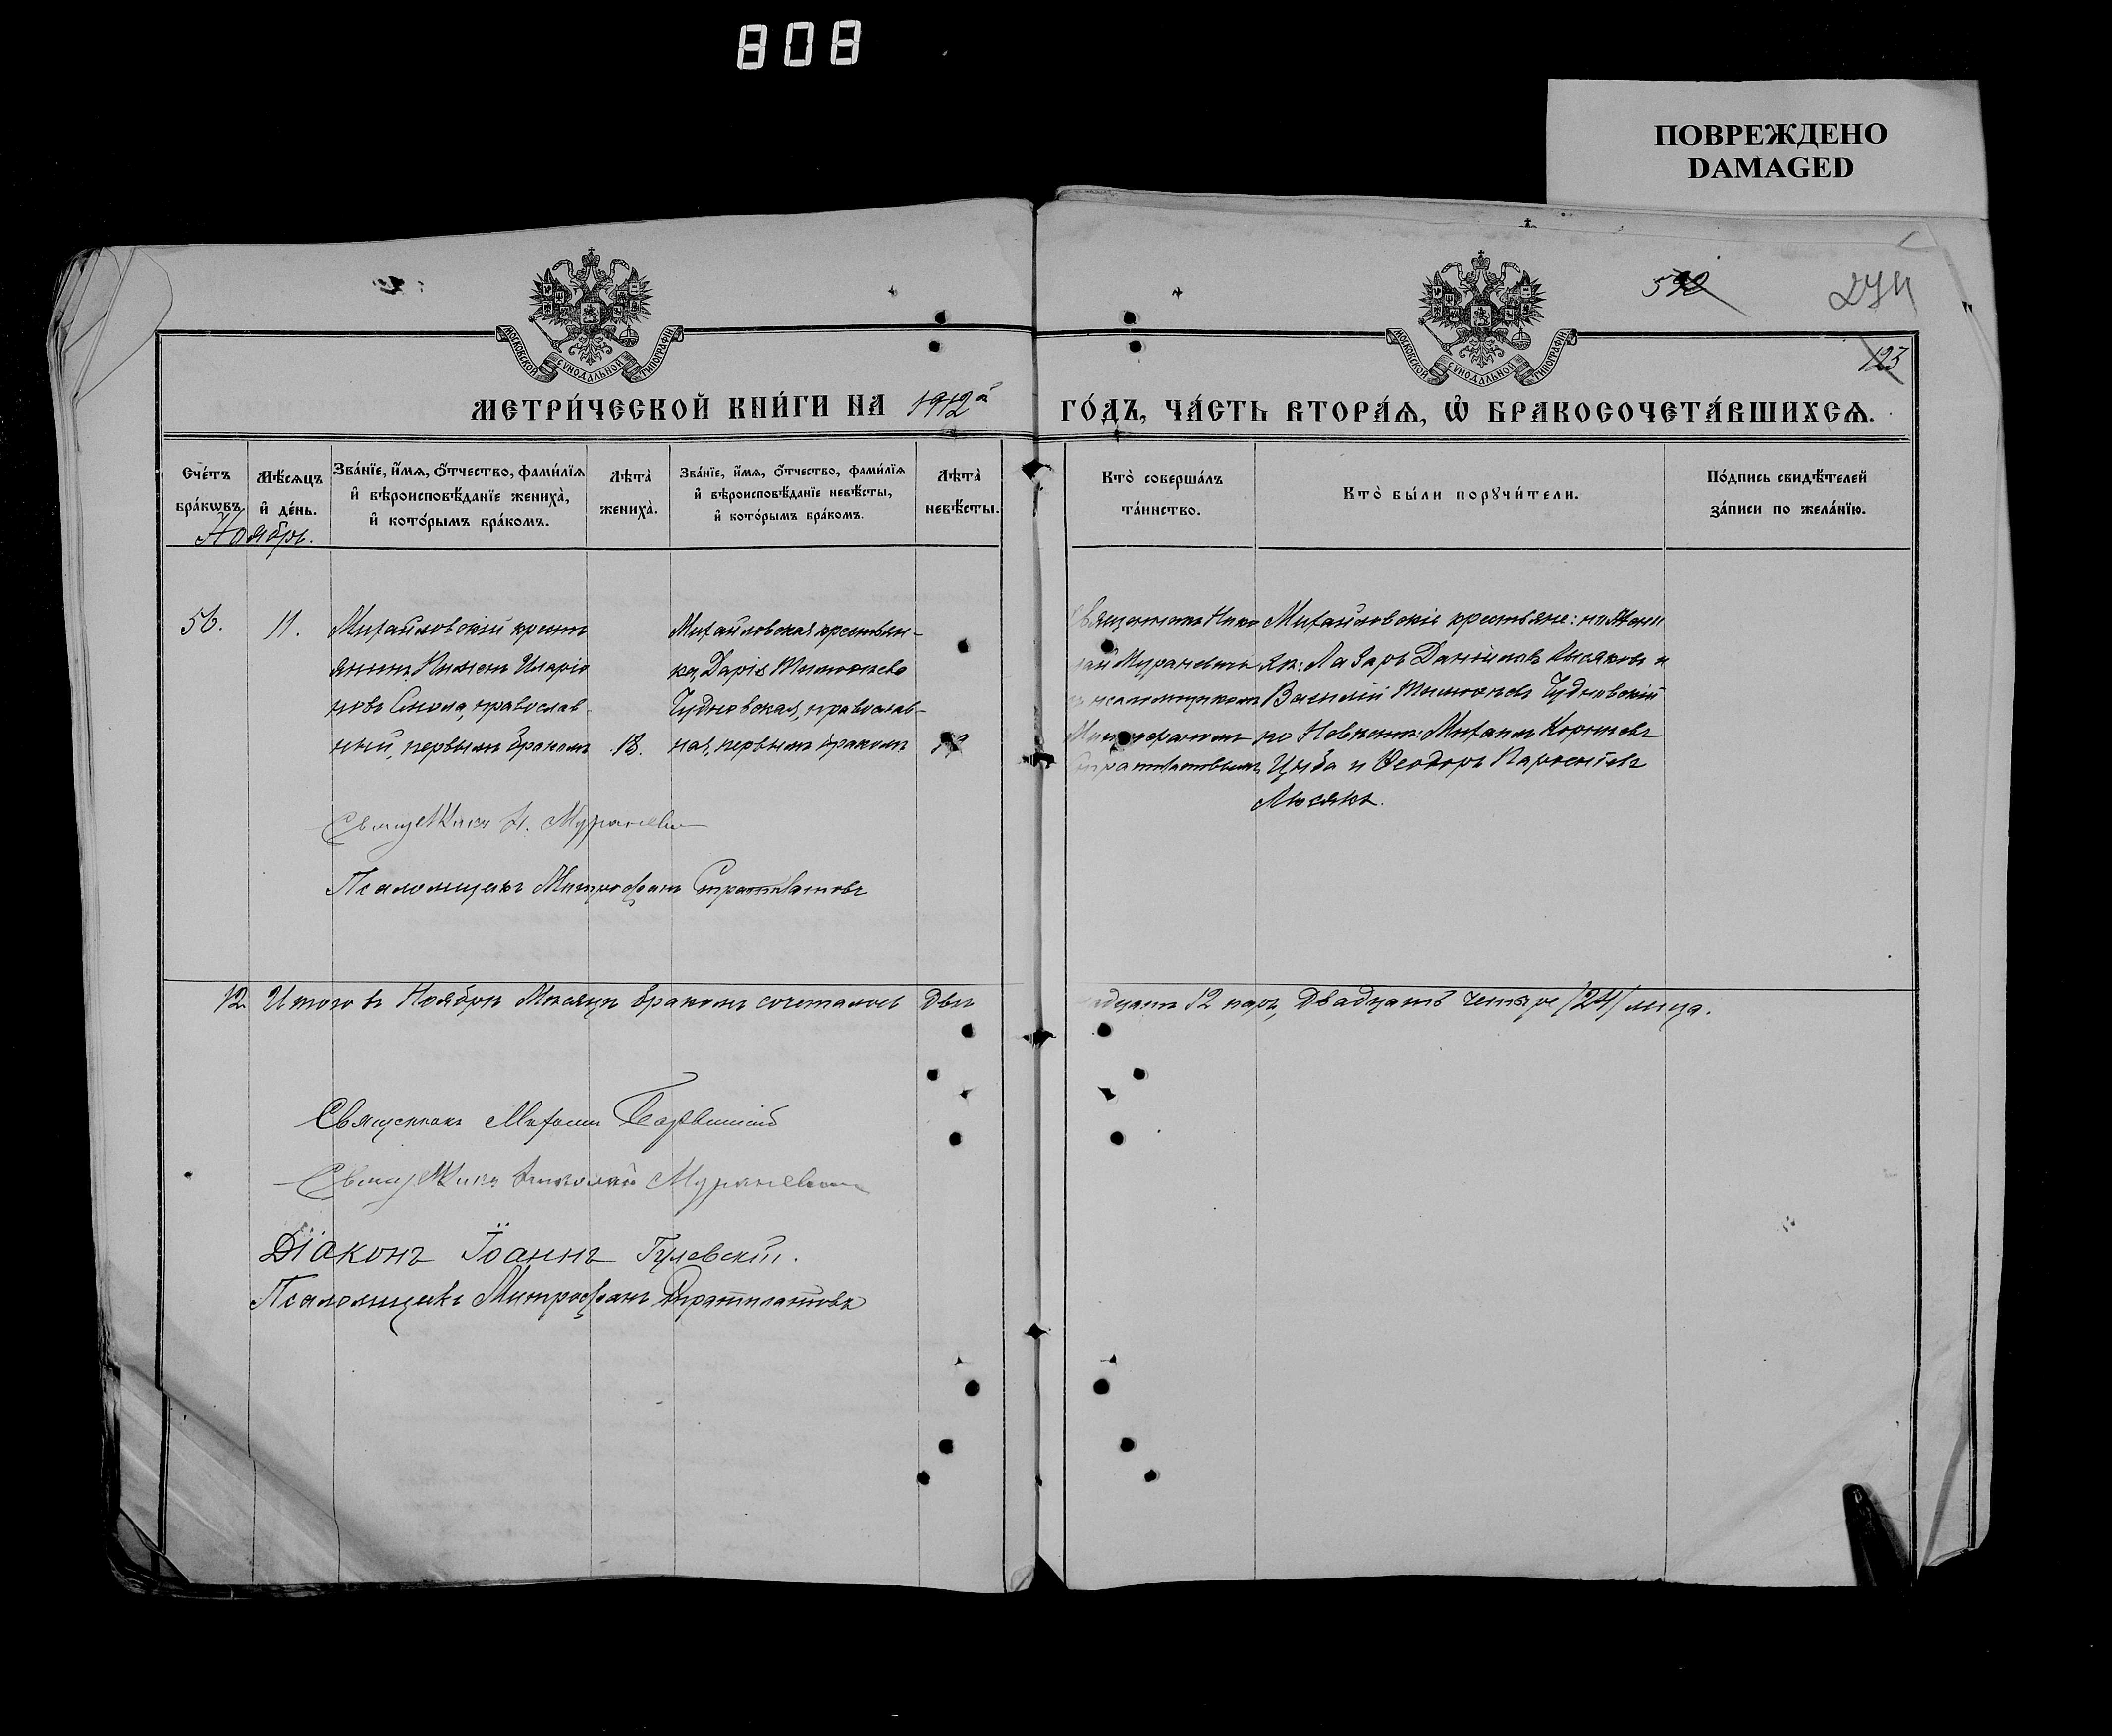 808
ПОВРЕЖДЕНО
DAMAGED
598
274
123
МОСКОВСКОЙ СѴНОДАЛЬНОЙ ТИПОГРАФІИ
МОСКОВСКОЙ СѴНОДАЛЬНОЙ ТИПОГРАФІИ
МЕТРИ́ЧЕСКОЙ КНИ́ГИ НА 1912й ГО́ДЪ, ЧА́СТЬ ВТОРА́Ѧ, Ѽ БРАКОСОЧЕТА́ВШИХСѦ.
Сче́тъ бра́кѡвъ.
Мѣ́сяцъ и҆ де́нь.
Зва́нїе, и҆́мѧ, о҆́тчество, фами́лїѧ
и҆ вѣроисповѣ́данїе жениха̀,
и҆ кото́рымъ бра́комъ.
Лѣта̀ жениха̀.
Зва́нїе, и҆́мѧ, о҆́тчество, фами́лїѧ
и҆ вѣроисповѣ́данїе невѣ́сты,
и҆ кото́рымъ бра́комъ.
Лѣта̀ невѣ́сты.
Кто̀ соверша́лъ
та́инство.
Кто̀ бы́ли порꙋчи́тели.
По́дпись свидѣ́телей
за́писи по жела́нїю.
Ноябрь.
56.
11.
Михайловскій кресть
янинъ Пименъ Иларіо
новъ Сокола, православ-
ный, первымъ бракомъ
18.
Михайловская крестьян-
ка, Дарія Тимофеева
Чудновская, православ-
ная, первымъ бракомъ
Священникъ Нико
лай Мураневичъ
съ псаломщикомъ
Митрофаномъ
Стратилатовымъ
Михайловскіе крестьяне: по Жени
хѣ: Лазарь Даніиловъ Кысякъ и
Василій Тимофеевъ Чудновскій
по Невѣстѣ: Михаилъ Корніевъ
Цыба и Ѳеодоръ
Люсякъ.
Священникъ Н. Мураневичъ
Псаломщикъ Митрофанъ Стратилатовъ
12 Итого въ Ноябрѣ Мѣсяцѣ бракомъ сочеталось Двѣ
надцать 12 паръ, Двадцать четыре /24/ лица.
Священникъ Михаилъ
Священникъ Николай Мураневичъ
Діаконъ Іоаннъ Гулевскій.
Псаломщикъ Митрофанъ Стратилатовъ